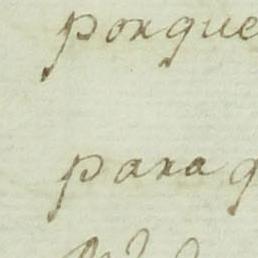 porque
para q